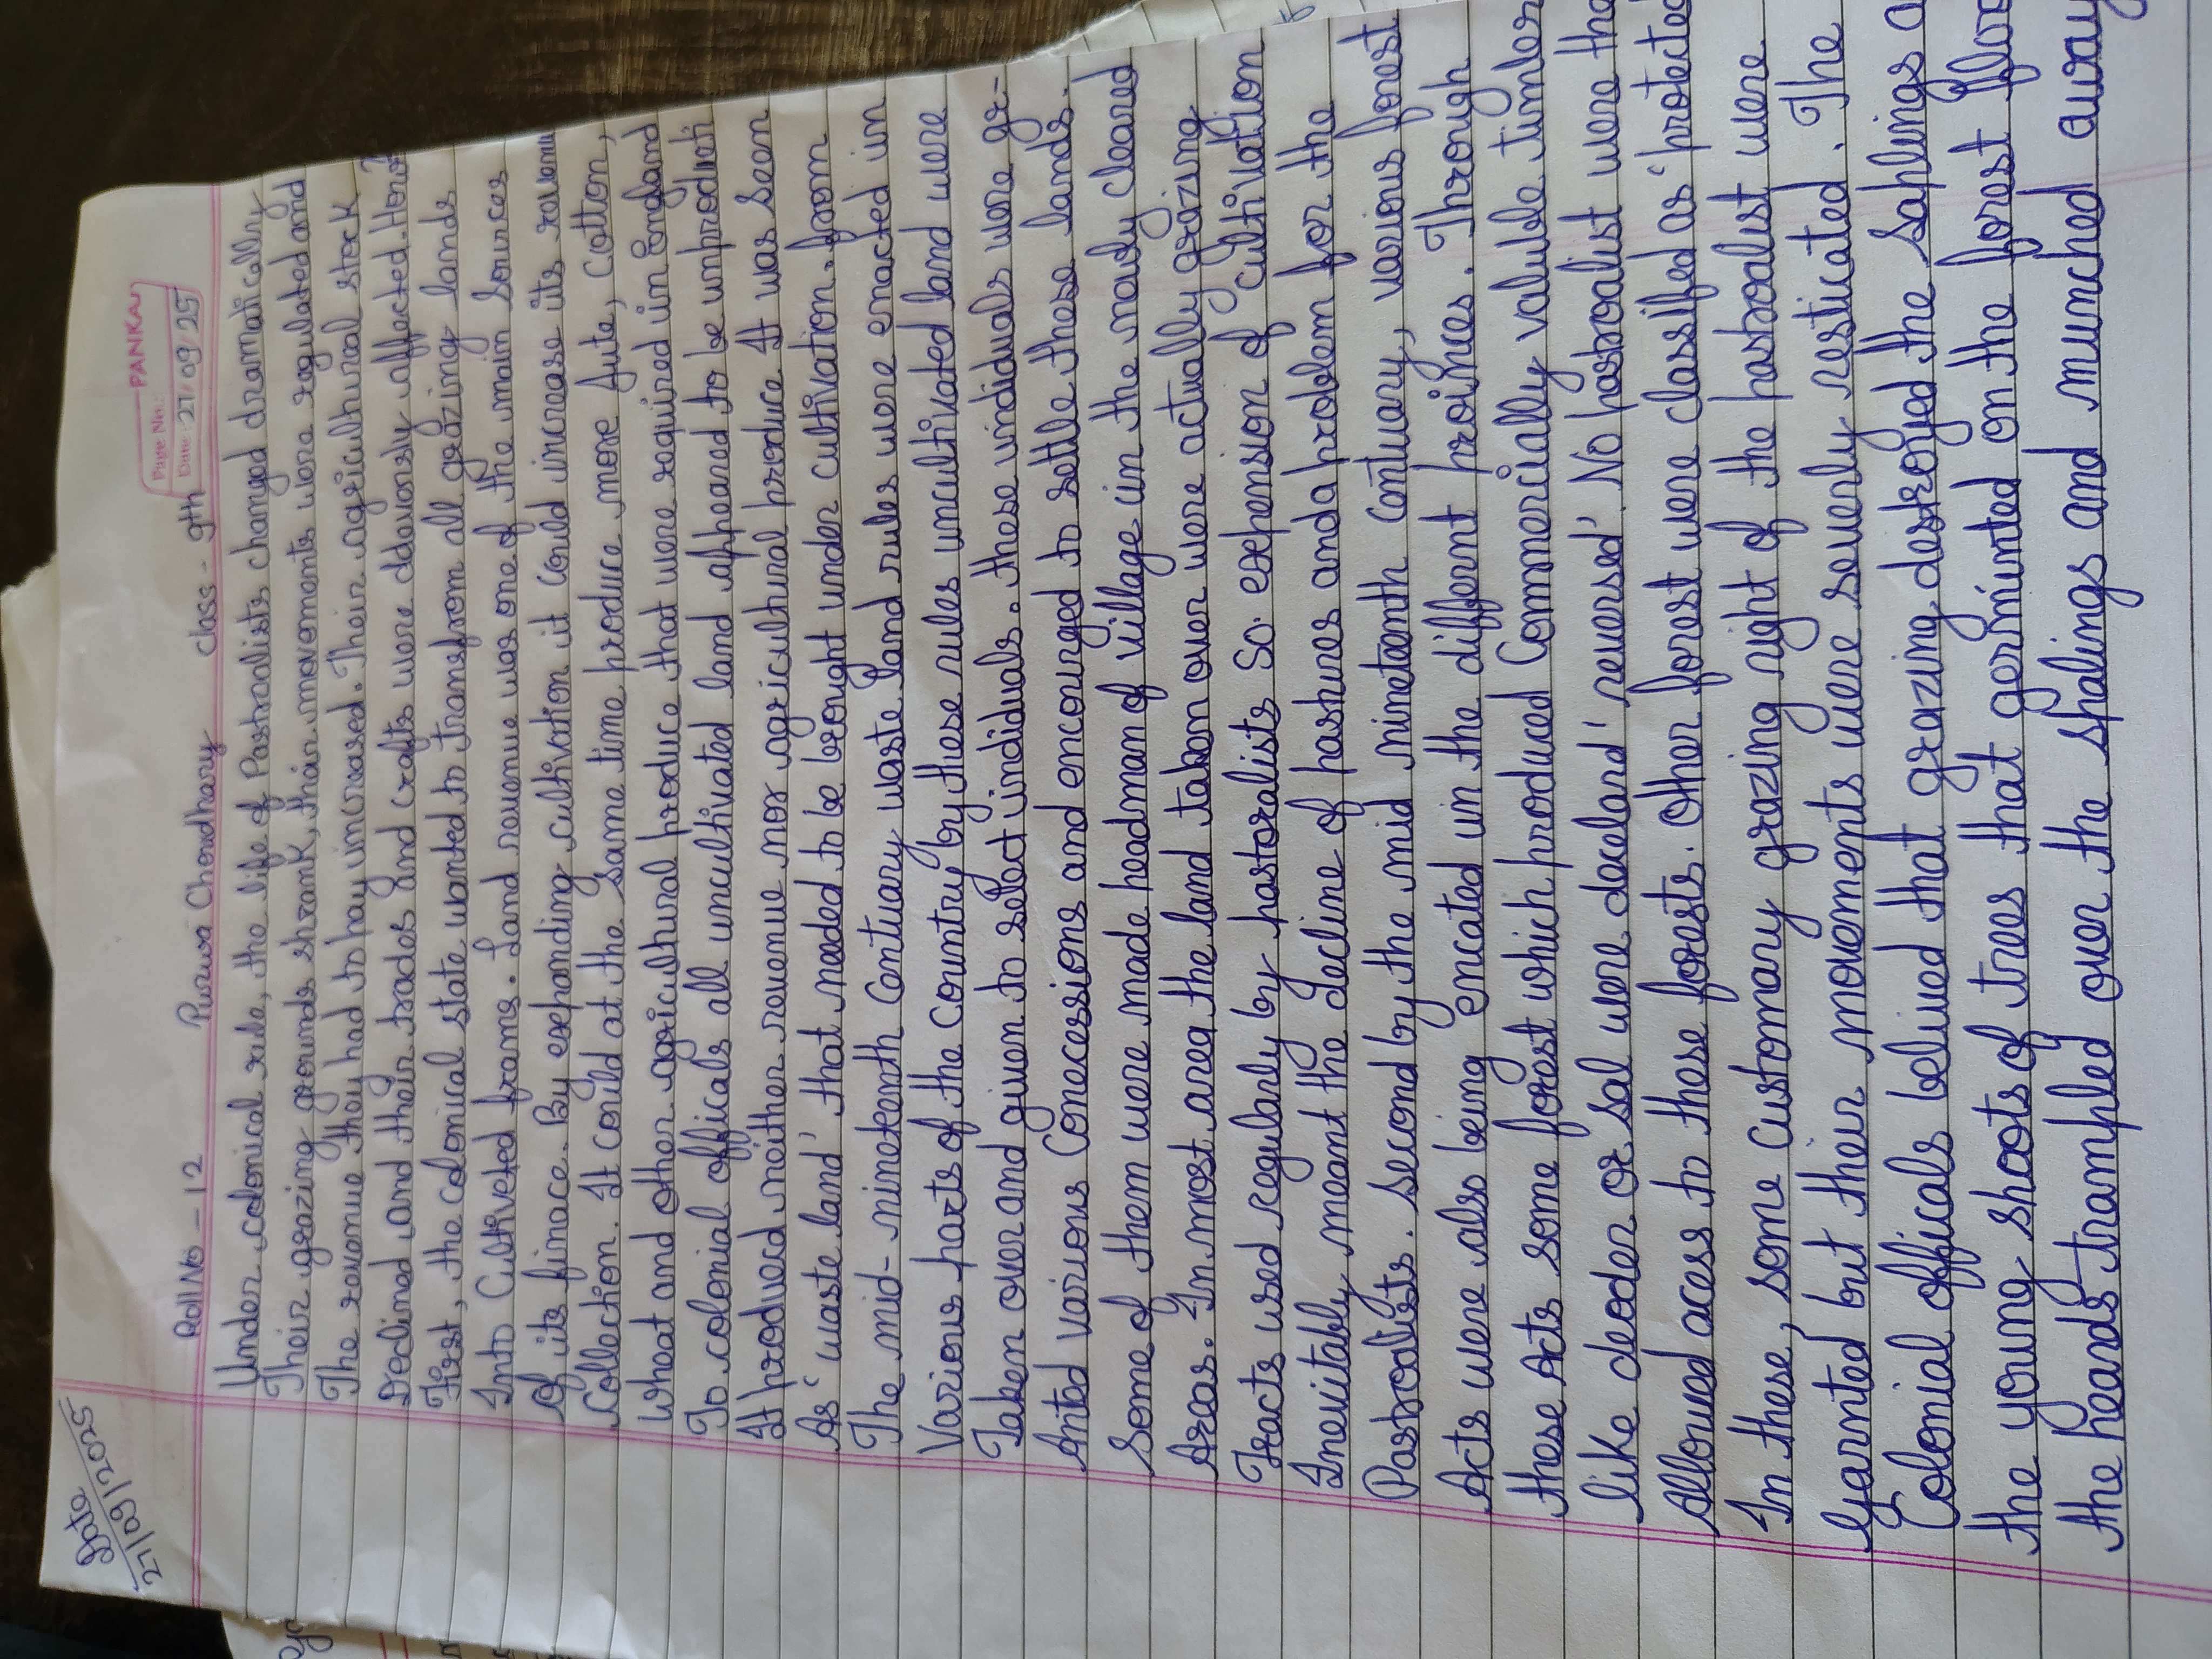 Date
27/09/2025
PANKAJ
Page No.:
Date: 27/09/25
Roll No - 12 Purwa Chowdhary class - 9th
Under colonical rule, the life of Pastrolists changed dramatically
Their grazing grounds shrank, their movements were regulated and
The revenue they had to pay incrased. Their agricultural stock
Declined and their trades and crafts were adversly affected.
First, the colonical state wanted to transfrom all grazing lands
Into Cultiveted frams. Land revenue was one of the main sources
Of its finace. By expanding cultivation it could increase its
Collection. It could at the same time produce more Jute, Cotton,
Wheat and other agricultural produce that were required in England
To colonial officals all uncultivated land appeared to be
It produced neither revenue nor agricultural produce It was seen
As 'waste land' that needed to be brought under cultivation. from
The mid-nineteenth Centuary waste land rules were enacted in
Various parts of the Country by these rules uncultivated land were
Taken over and given to select individuals. these individuals were gr-
Anted various Concessions and encouraged to settle these lands.
Some of them were made headman of village in the newly cleared
Areas. In most area the land taken over were actually grazing
Tracts used regularly by pastoralists So. expension of cultivation
Inevitably meant the decline of pastures and a problem for the
Pastroalists. second by the mid nineteenth Centuary, various forest
Acts were also being encated in the differnt proinces. Through
these Acts some forest which produced Commercially valuble timber
like deoder or sal were deceland 'reversed' No pastroalist were the
Allowed acess to these forests. Other forest were classifed as 'protected
In these, some customary grazing right of the pastroalist were
Garnted but their movements were severly resticated. The
Colonial officals belived that grazing destroyed the saplings a
the young shoots of trees that germinted on the forest floo
the heards trampled over the splaings and munched away